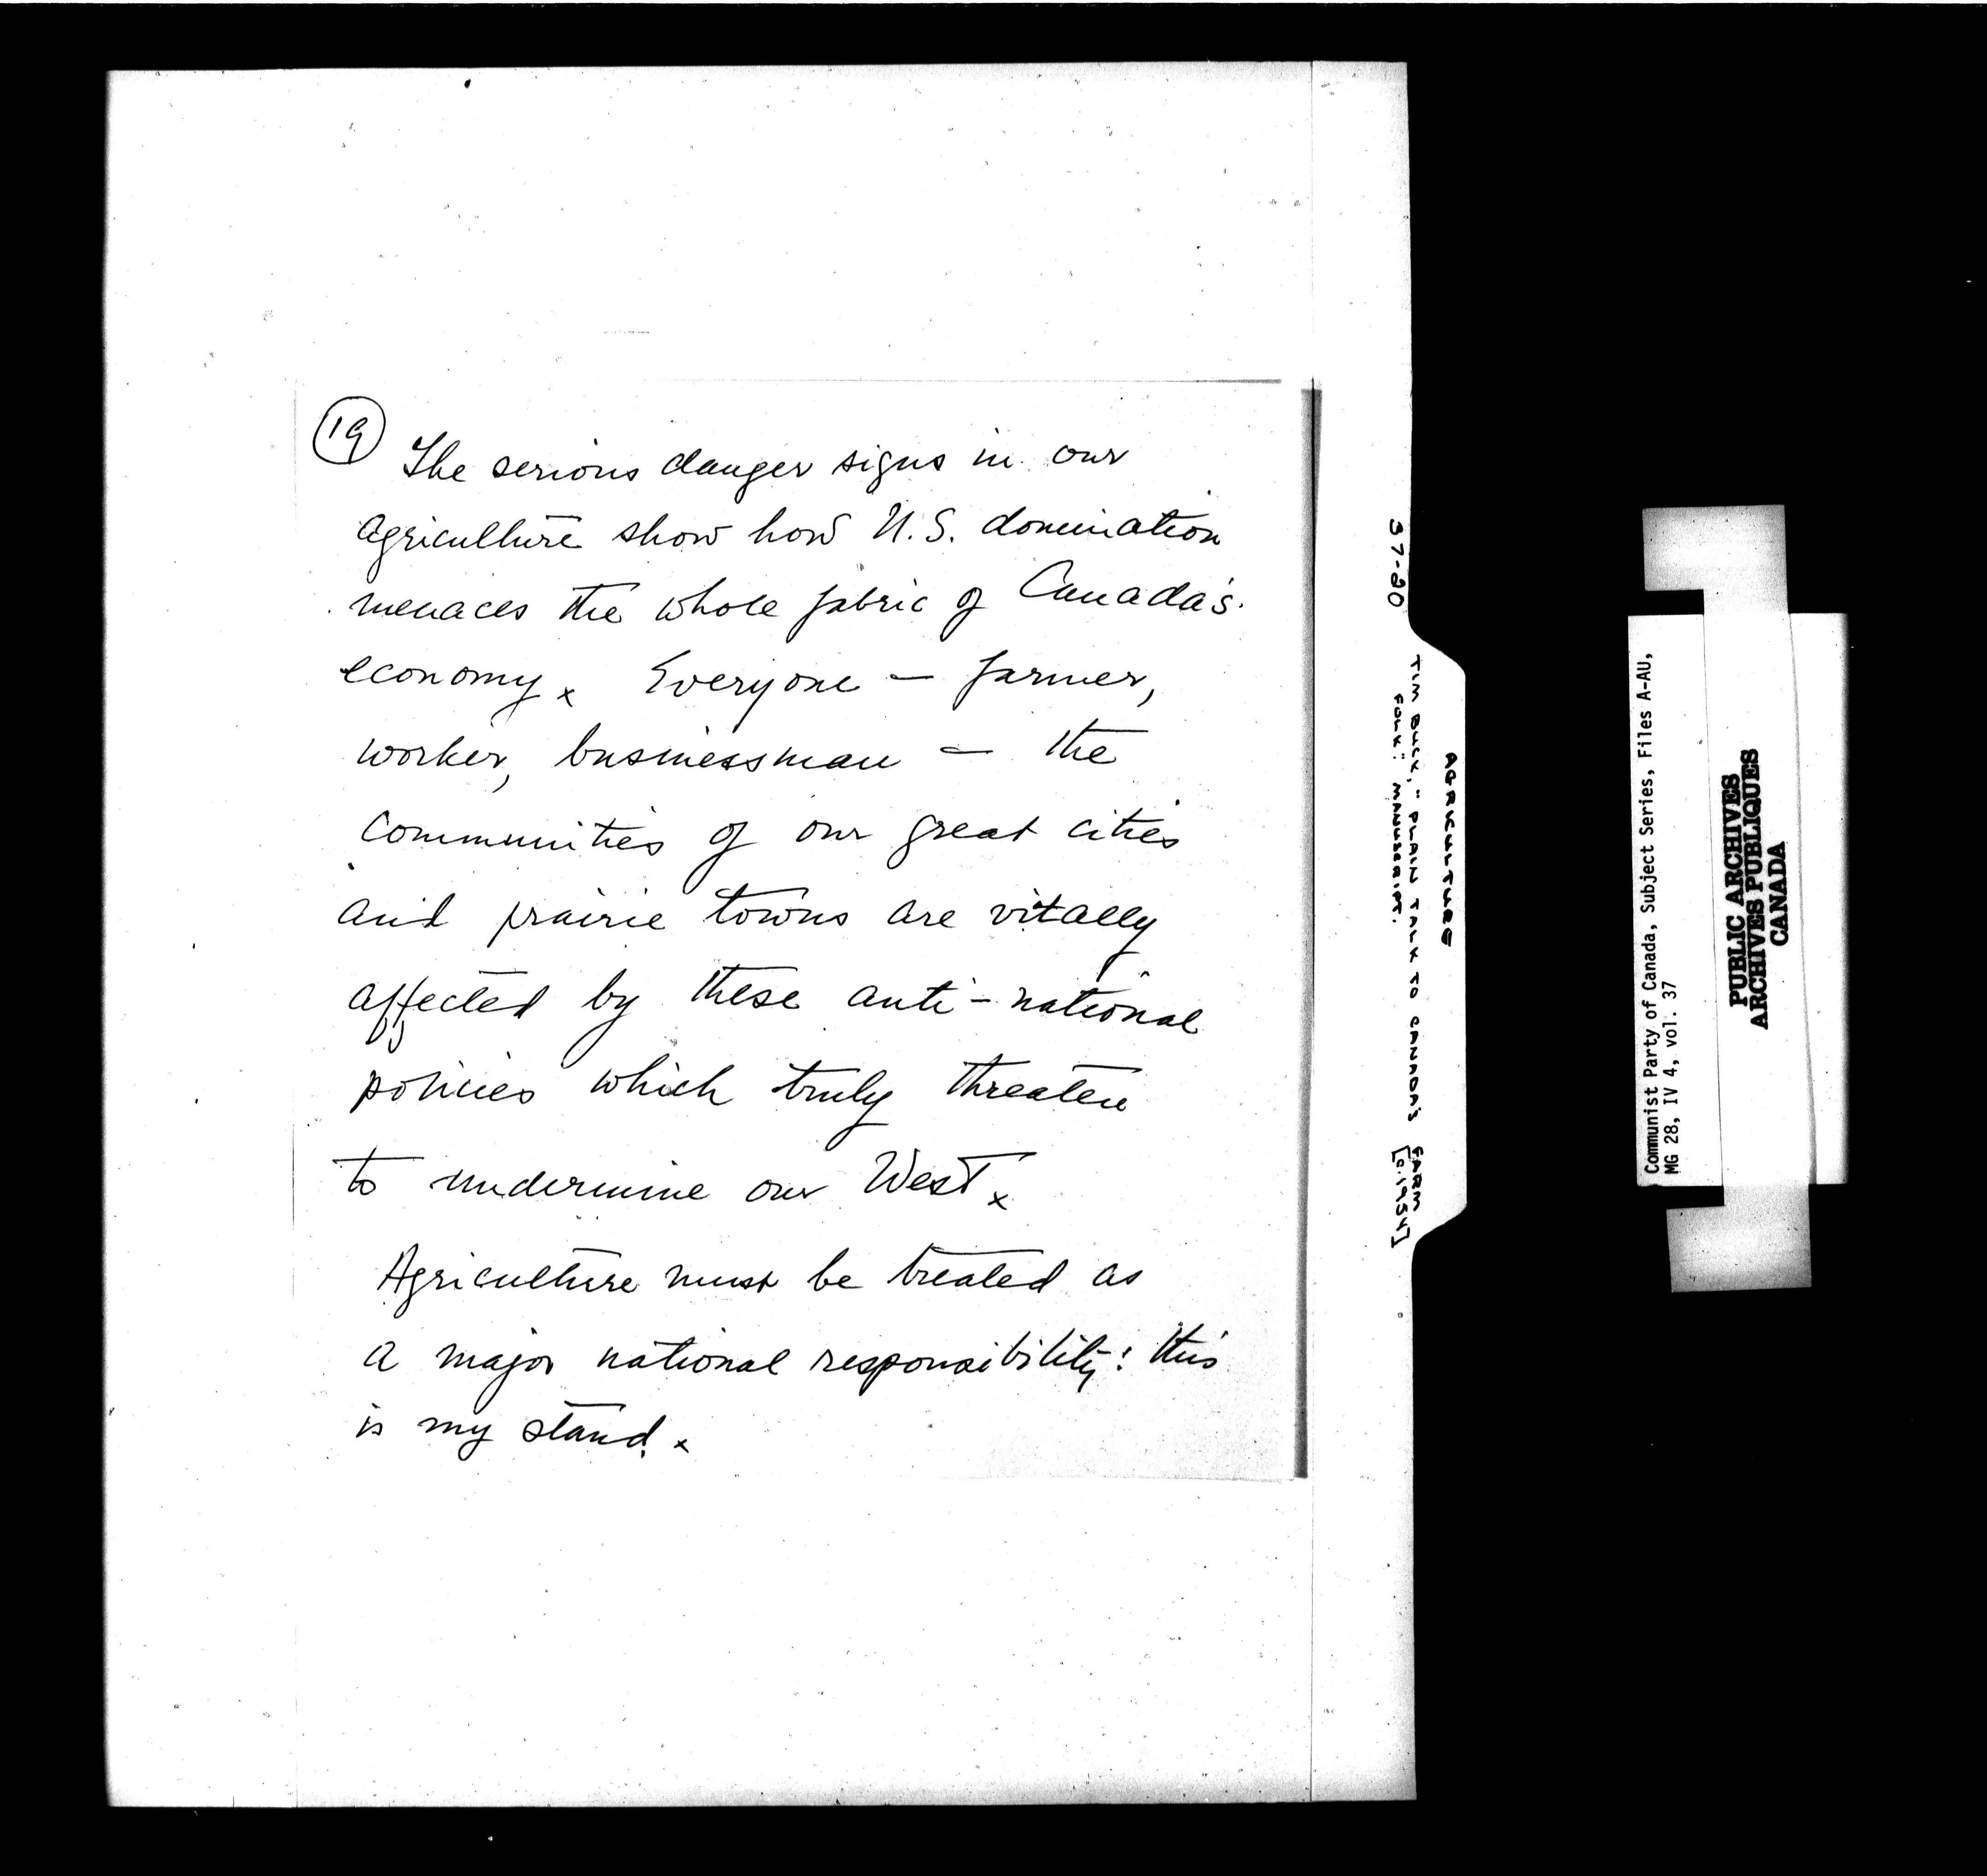 19
The serious danger signs in our
agriculture show how U.S. domination
menaces the whole fabric of Canada's
economy x Everyone — farmer,
worker, businessman — the
communities of our great cities
and prairie towns are vitally
affected by these anti-national
policies which truly threaten
to undermine our West x
Agriculture must be treated as
a major national responsibility: this
is my stand. x
37-20
AGRICULTURE
TIM BUCK, "PLAIN TALK TO CANADA'S FARM
FOLK: MANUSCRIPT. [c.1954]
Communist Party of Canada, Subject Series, Files A-AU,
MG 28, IV 4, vol. 37
PUBLIC ARCHIVES
ARCHIVES PUBLIQUES
CANADA